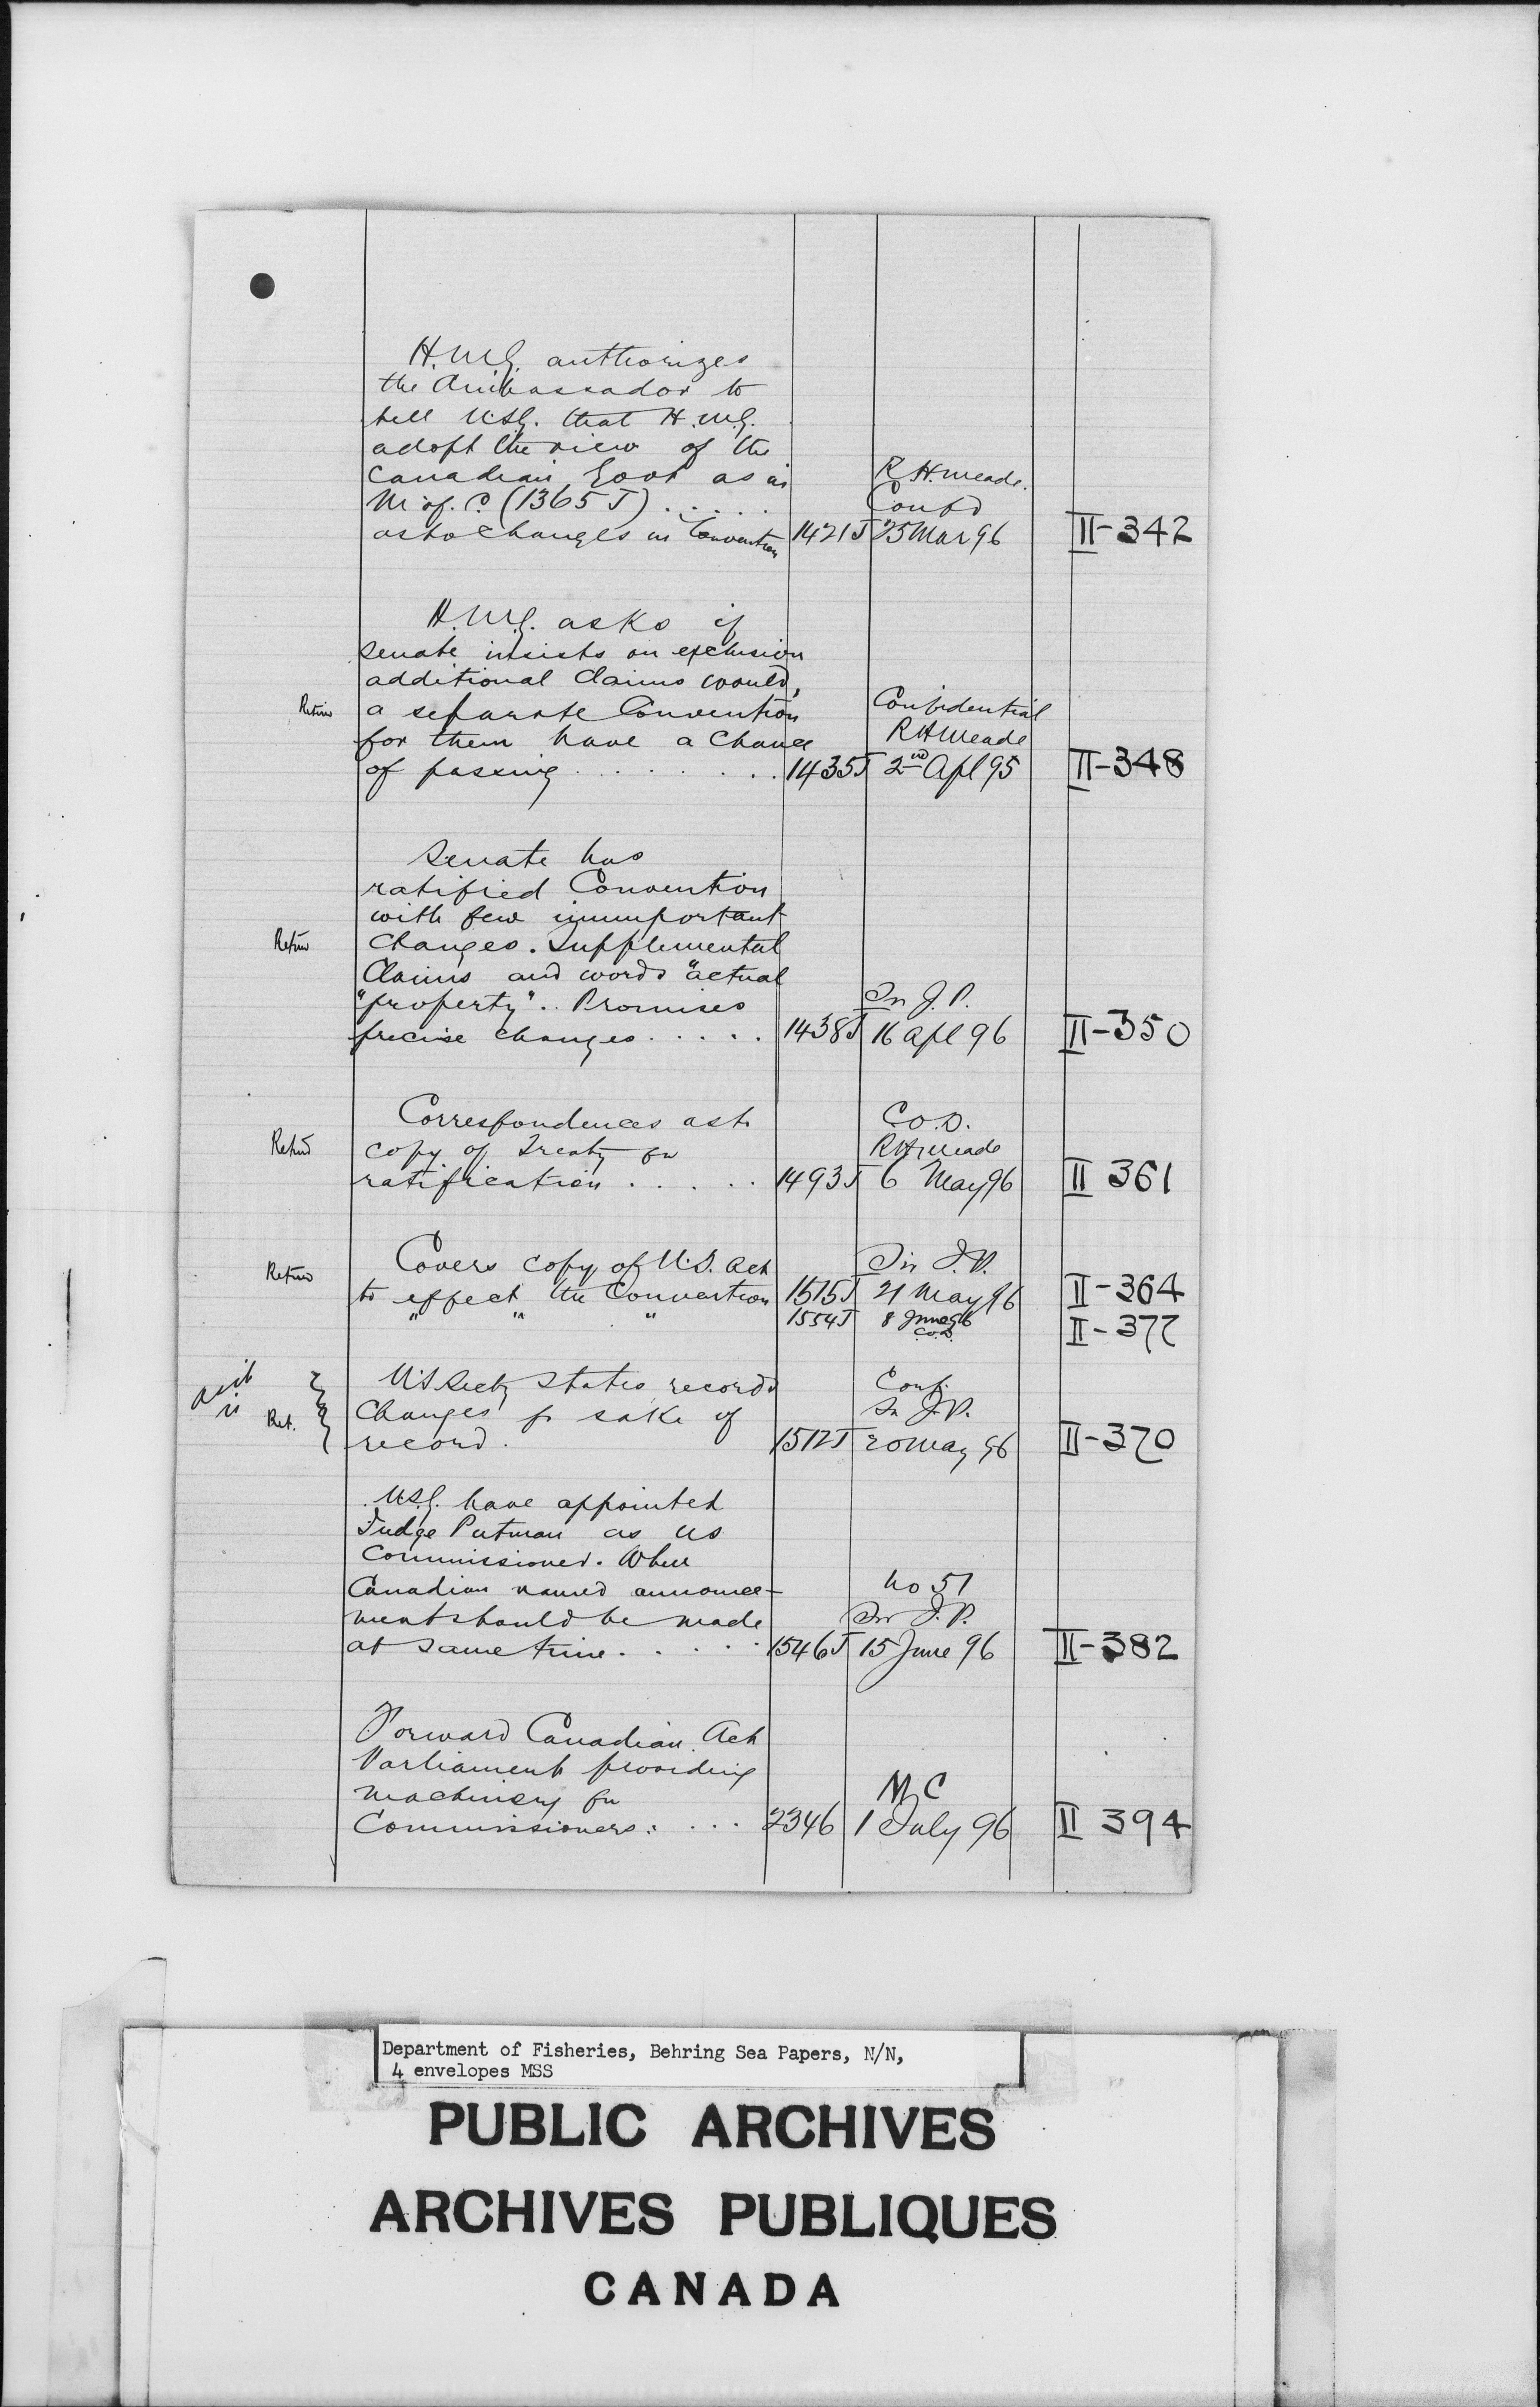 H.M.G. authorizes
the Ambassador to
tell U.S.G. that H.M.G.
adopt the view of the
Canadian Govt as in R H. Meade.
M of. C. (1365 J) . . . . . Confd
as to changes in Convention 1421 J 25 Mar 96 II-342
H.M.G. asks if
Senate insists on exclusion
additional Claims would,
Return a separate Convention Confidential
for them have a chance R H Meade
of passing . . . . . . . . 1435 J 2nd Apl 95 II-348
Senate has
ratified Convention
with few unimportant
Return changes. Supplemental
Claims and words "actual
"property". Promises Sir J. P.
precise changes . . . . . 1438 J 16 Apl 96 II-350
Correspondences as to C.O.D.
Return copy of Treaty for R H Meade
ratification . . . . . 1493 J 6 May 96 II 361
Covers copy of U.S. Act Sir J. P.
Return to effect the Convention 1515 J 21 May 96 II-364
" " " 1554 J 8 June 96 II-377
C.O.D.
U S Secty States records Conf.
Ret. Changes for sake of Sir J. P.
record. 1512 J 20 May 96 II-370
U.S.G. have appointed
Judge Putman as US
Commissioner. When
Canadian named announce- No 51
ment should be made Sir J. P.
at same time . . . . . 1546 J 15 June 96 II-382
Forward Canadian Act
Parliament providing
machinery for M C
Commissioners . . . . 2346 1 July 96 II 394
Department of Fisheries, Behring Sea Papers, N/N,
4 envelopes MSS
PUBLIC ARCHIVES
ARCHIVES PUBLIQUES
CANADA